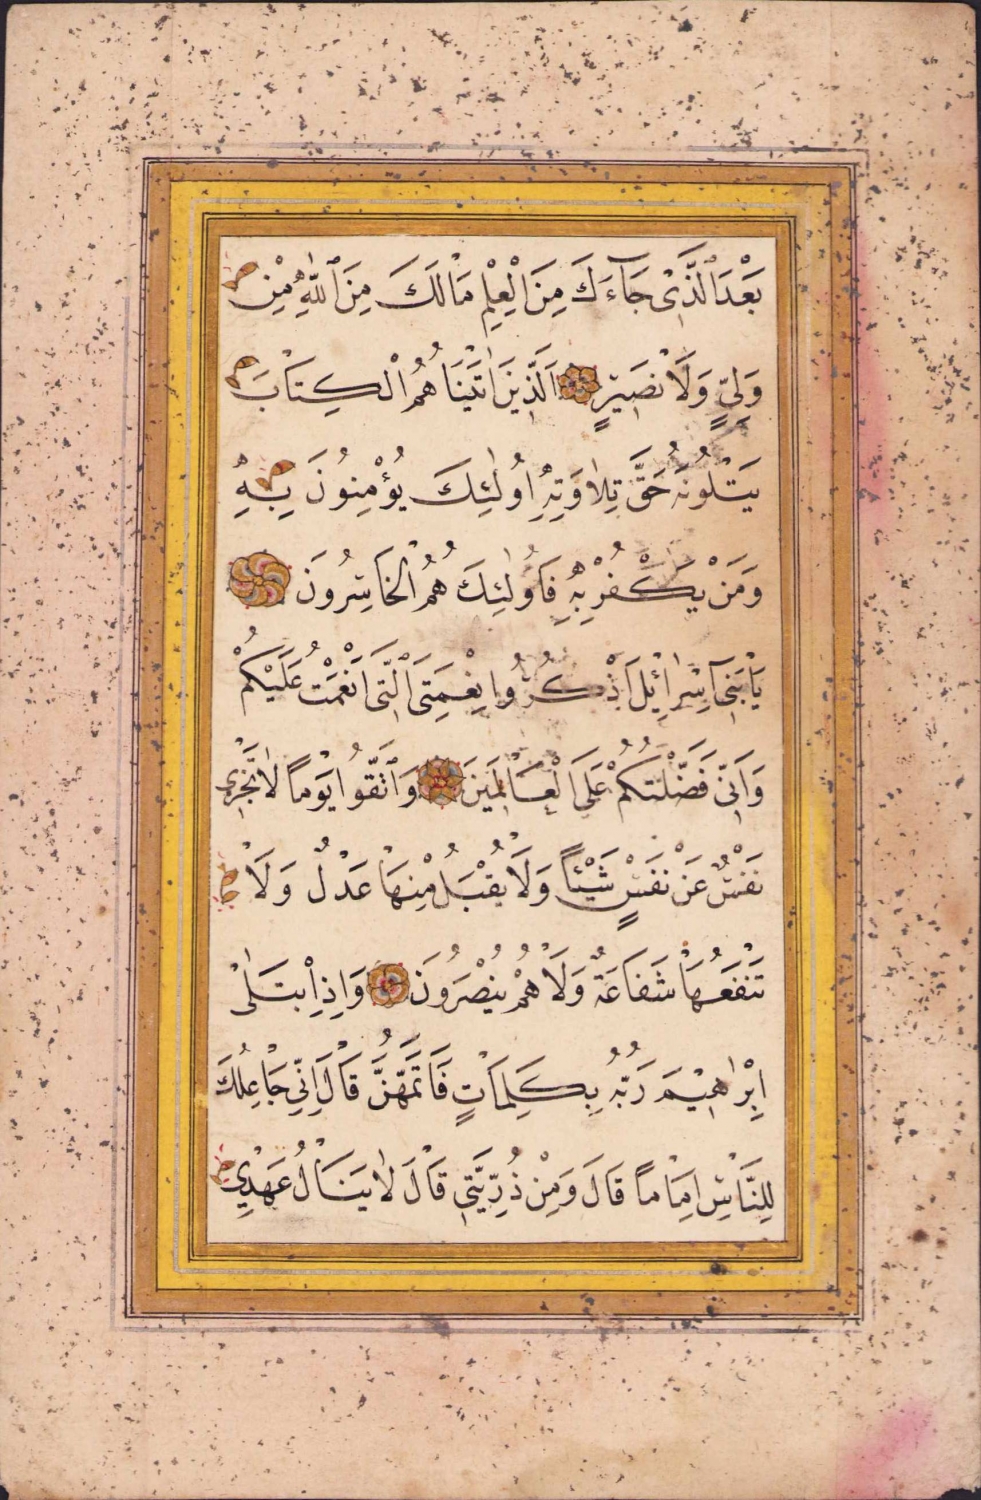 بَعْدَ الَّذِى جَآءَكَ مِنَ الْعِلْمِ مَالَكَ مِنَ اللّٰهِ مِنْ
وَلِىٍّ وَلَا نَصِيرٍ اَلَّذِينَ اٰتَيْنَاهُمُ الْكِتَابَ
يَتْلُونَهُ حَقَّ تِلَاوَتِهِ اُولٰئِكَ يُؤْمِنُونَ بِهِ
وَمَنْ يَكْفُرْ بِهِ فَاُولٰئِكَ هُمُ الْخَاسِرُونَ
يَابَنِىٓ اِسْرَائِلَ اذْكُرُوا نِعْمَتِىَ الَّتِى اَنْعَمْتُ عَلَيْكُمْ
وَاَنِّى فَضَّلْتُكُمْ عَلَى الْعَالَمِينَ وَاتَّقُوا يَوْمًا لَا تَجْزِى
نَفْسٌ عَنْ نَفْسٍ شَيْئًا وَلَا يُقْبَلُ مِنْهَا عَدْلٌ وَلَا
تَنْفَعُهَا شَفَاعَةٌ وَلَا هُمْ يُنْصَرُونَ وَاِذِ ابْتَلٰى
اِبْرَاهِيمَ رَبُّهُ بِكَلِمَاتٍ فَاَتَمَّهُنَّ قَالَ اِنِّى جَاعِلُكَ
لِلنَّاسِ اِمَامًا قَالَ وَمِنْ ذُرِّيَّتِى قَالَ لَا يَنَالُ عَهْدِى